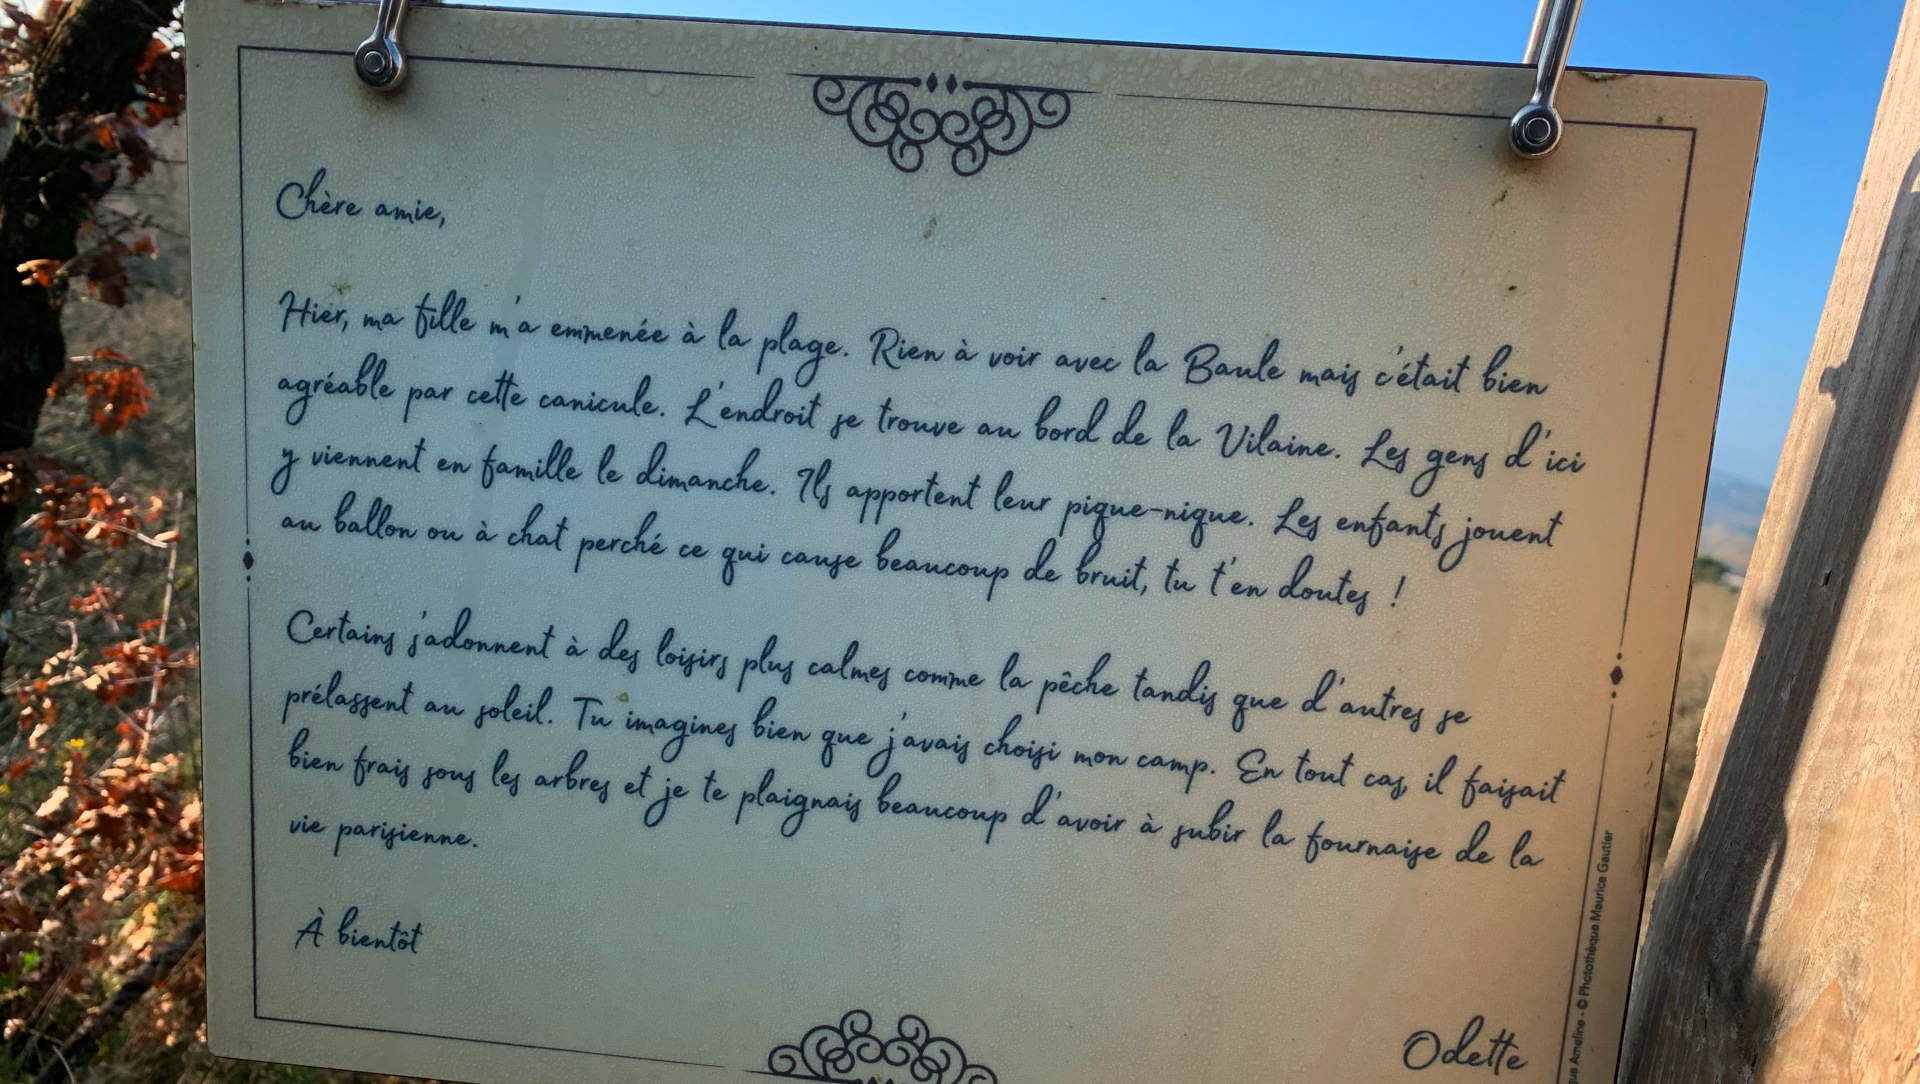 Chère amie,
Hier, ma fille m'a emmenée à la plage. Rien à voir avec la Baule mais c'était bien
agréable par cette canicule. L'endroit se trouve au bord de la Vilaine. Les gens d'ici
y viennent en famille le dimanche. Ils apportent leur pique-nique. Les enfants jouent
au ballon ou à chat perché ce qui cause beaucoup de bruit, tu t'en doutes !
Certains s'adonnent à des loisirs plus calmes comme la pêche tandis que d'autres se
prélassent au soleil. Tu imagines bien que j'avais choisi mon camp. En tout cas, il faisait
bien frais sous les arbres et je te plaignais beaucoup d'avoir à subir la fournaise de la
vie parisienne.
À bientôt
Odette
Ameline - © Photothèque Maurice Gautier